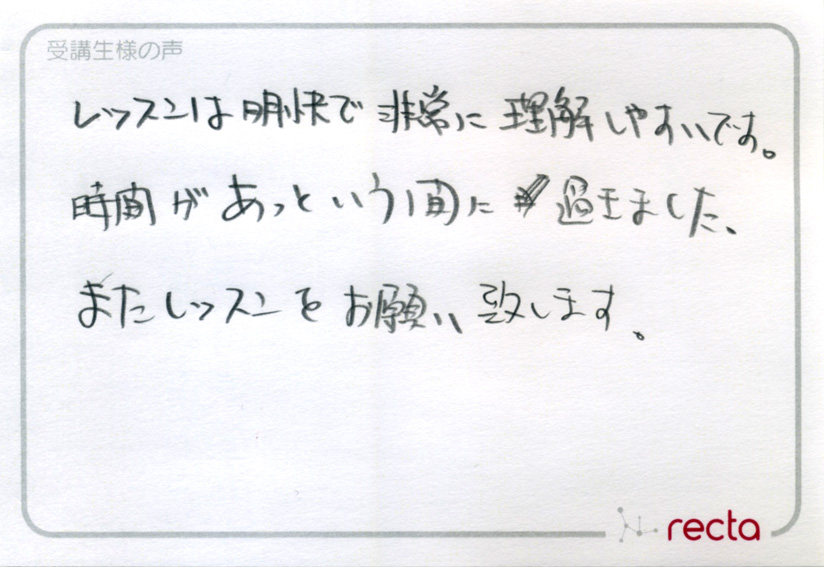 受講生様の声
レッスンは明快で非常に理解しやすいです。
時間があっという間に過ぎました、
またレッスンをお願い致します。
recta